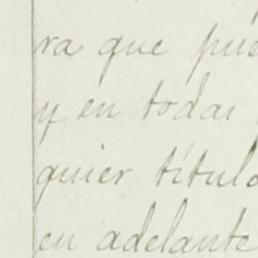 ra que pue
y en todas
quier título
en adelante